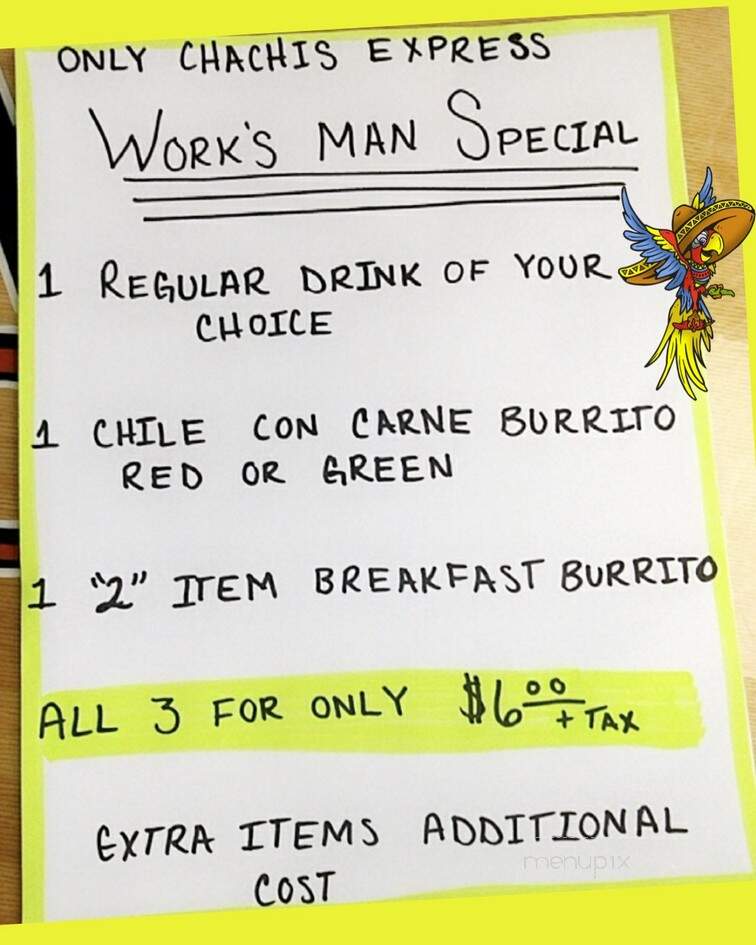 ONLY CHACHIS EXPRESS
WORK'S MAN SPECIAL
1 REGULAR DRINK OF YOUR
CHOICE
1 CHILE CON CARNE BURRITO
RED OR GREEN
1 "2" ITEM BREAKFAST BURRITO
ALL 3 FOR ONLY $6.00 + TAX
EXTRA ITEMS ADDITIONAL
COST
menupix